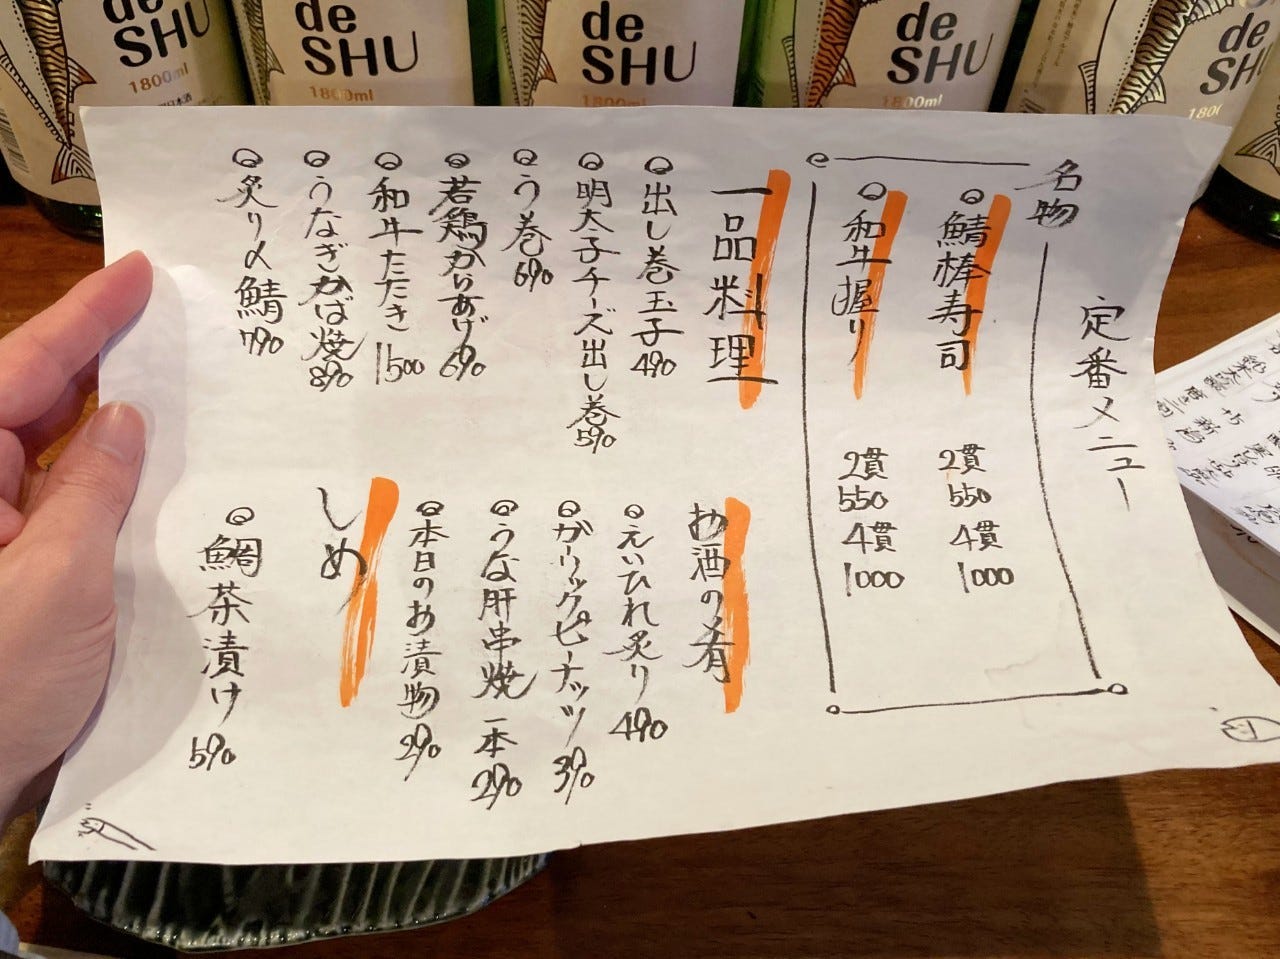 de
SHU
1800ml
de
SHU
1800ml
de
SHU
1800ml
de
SHU
1800ml
de
SHU
定番メニュー
名物
鯖棒寿司 2貫 550 4貫 1000
和牛握り 2貫 550 4貫 1000
一品料理
出し巻玉子 490
明太子チーズ出し巻 590
う巻 690
若鶏からあげ 690
和牛たたき 1500
うなぎかば焼 890
炙り〆鯖 790
お酒の肴
えいひれ炙り 490
ガーリックピーナッツ 390
うな肝串焼 一本 290
本日のお漬物 290
しめ
鯛茶漬け 590